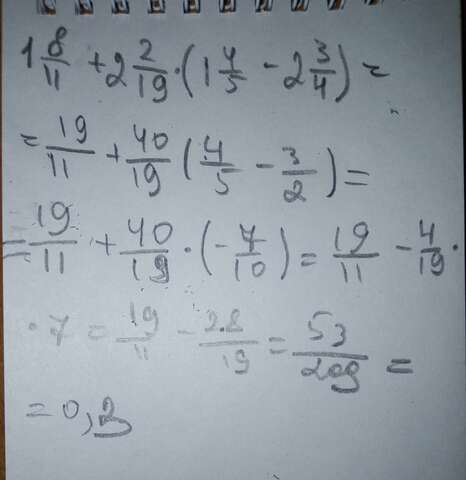 1 8/11 + 2 2/19 · (1 4/5 - 2 3/4) =
= 19/11 + 40/19 (4/5 - 3/2) =
= 19/11 + 40/19 · (- 7/10) = 19/11 - 4/19 ·
· 7 = 19/11 - 28/19 = 53/209 =
= 0,3